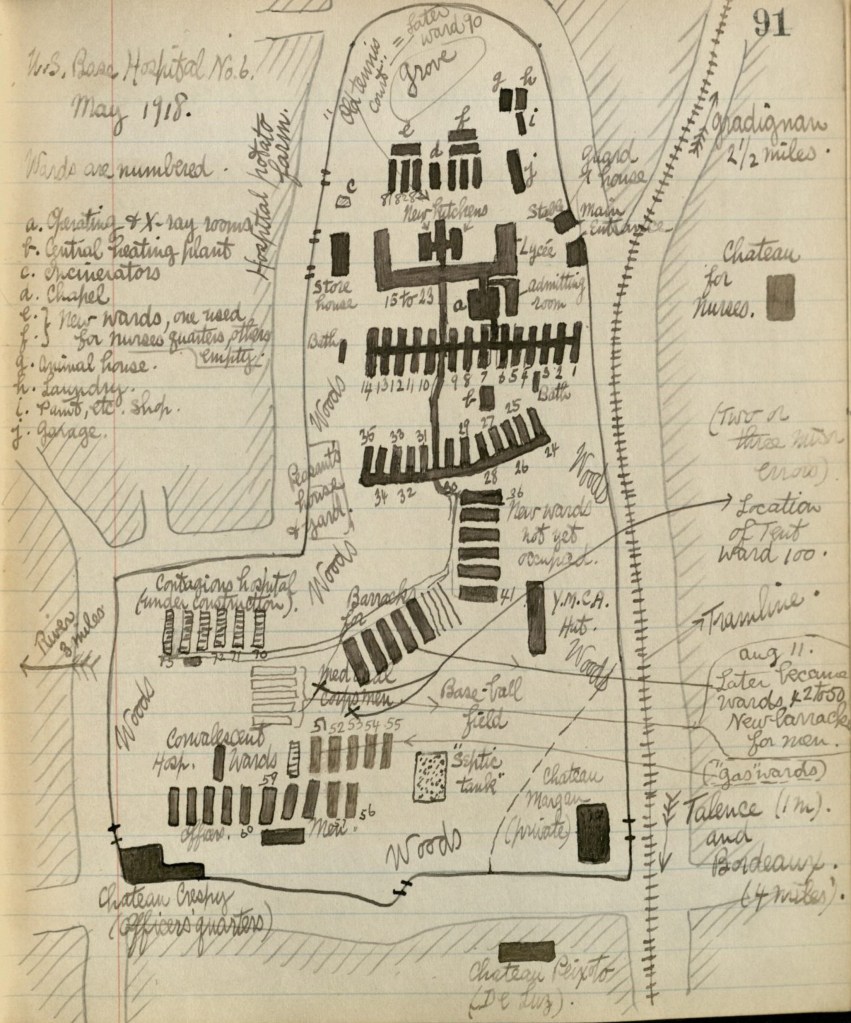 91
U.S. Base Hospital No. 6.
May 1918.
Wards are numbered.
a. Operating & X-ray rooms
b. Central heating plant
c. Incinerators
d. Chapel
e. } New wards, one used
f. } for nurses quarters, others
empty.
g. Animal house.
h. Laundry.
i. Paint, etc. shop.
j. Garage.
Hospital potato
farm.
"Old tennis
court." = Later
ward 90
Grove
g h
i
e f
d
j
c
81 82 83 84
New kitchens
Guard
house
Store
Main
Entrance
Gradignan
2 1/2 miles.
Store
house
Lycée
15 to 23
a
admitting
room
Chateau
for
nurses.
Bath
14 13 12 11 10 9 8 7 6 5 4 3 2 1
b
Bath
Woods
35 33 31 29 27 25
34 32 30 28 26 24
Peasant's
house
& yard.
Woods
(Two or
three minor
errors)
36
New wards
not yet
occupied.
41
Location
of Tent
Ward 100.
Woods
Contagious hospital
(under construction).
73 72 71 70
Barracks
for
Medical
corpsmen.
Y.M.C.A.
Hut.
Woods
Tramline.
River
3 miles
Aug 11.
Later became
wards, 42 to 50
New barracks
for men.
Woods
Base-ball
field
51 52 53 54 55
Convalescent
Hosp. Wards
59
"Septic
tank"
("gas" wards)
Chateau
Margan
(private)
Officers. 60 Men. 56
Woods
Talence (1 m).
and
Bordeaux.
(4 miles).
Chateau Crespy
(Officers' quarters)
Chateau Peixoto
(De Luz).